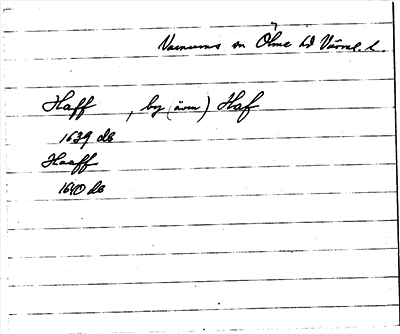 Varnums sn Ölme hd Värml. l.
Haff, by (även) Haf
1639 db
Haaff
1640 db